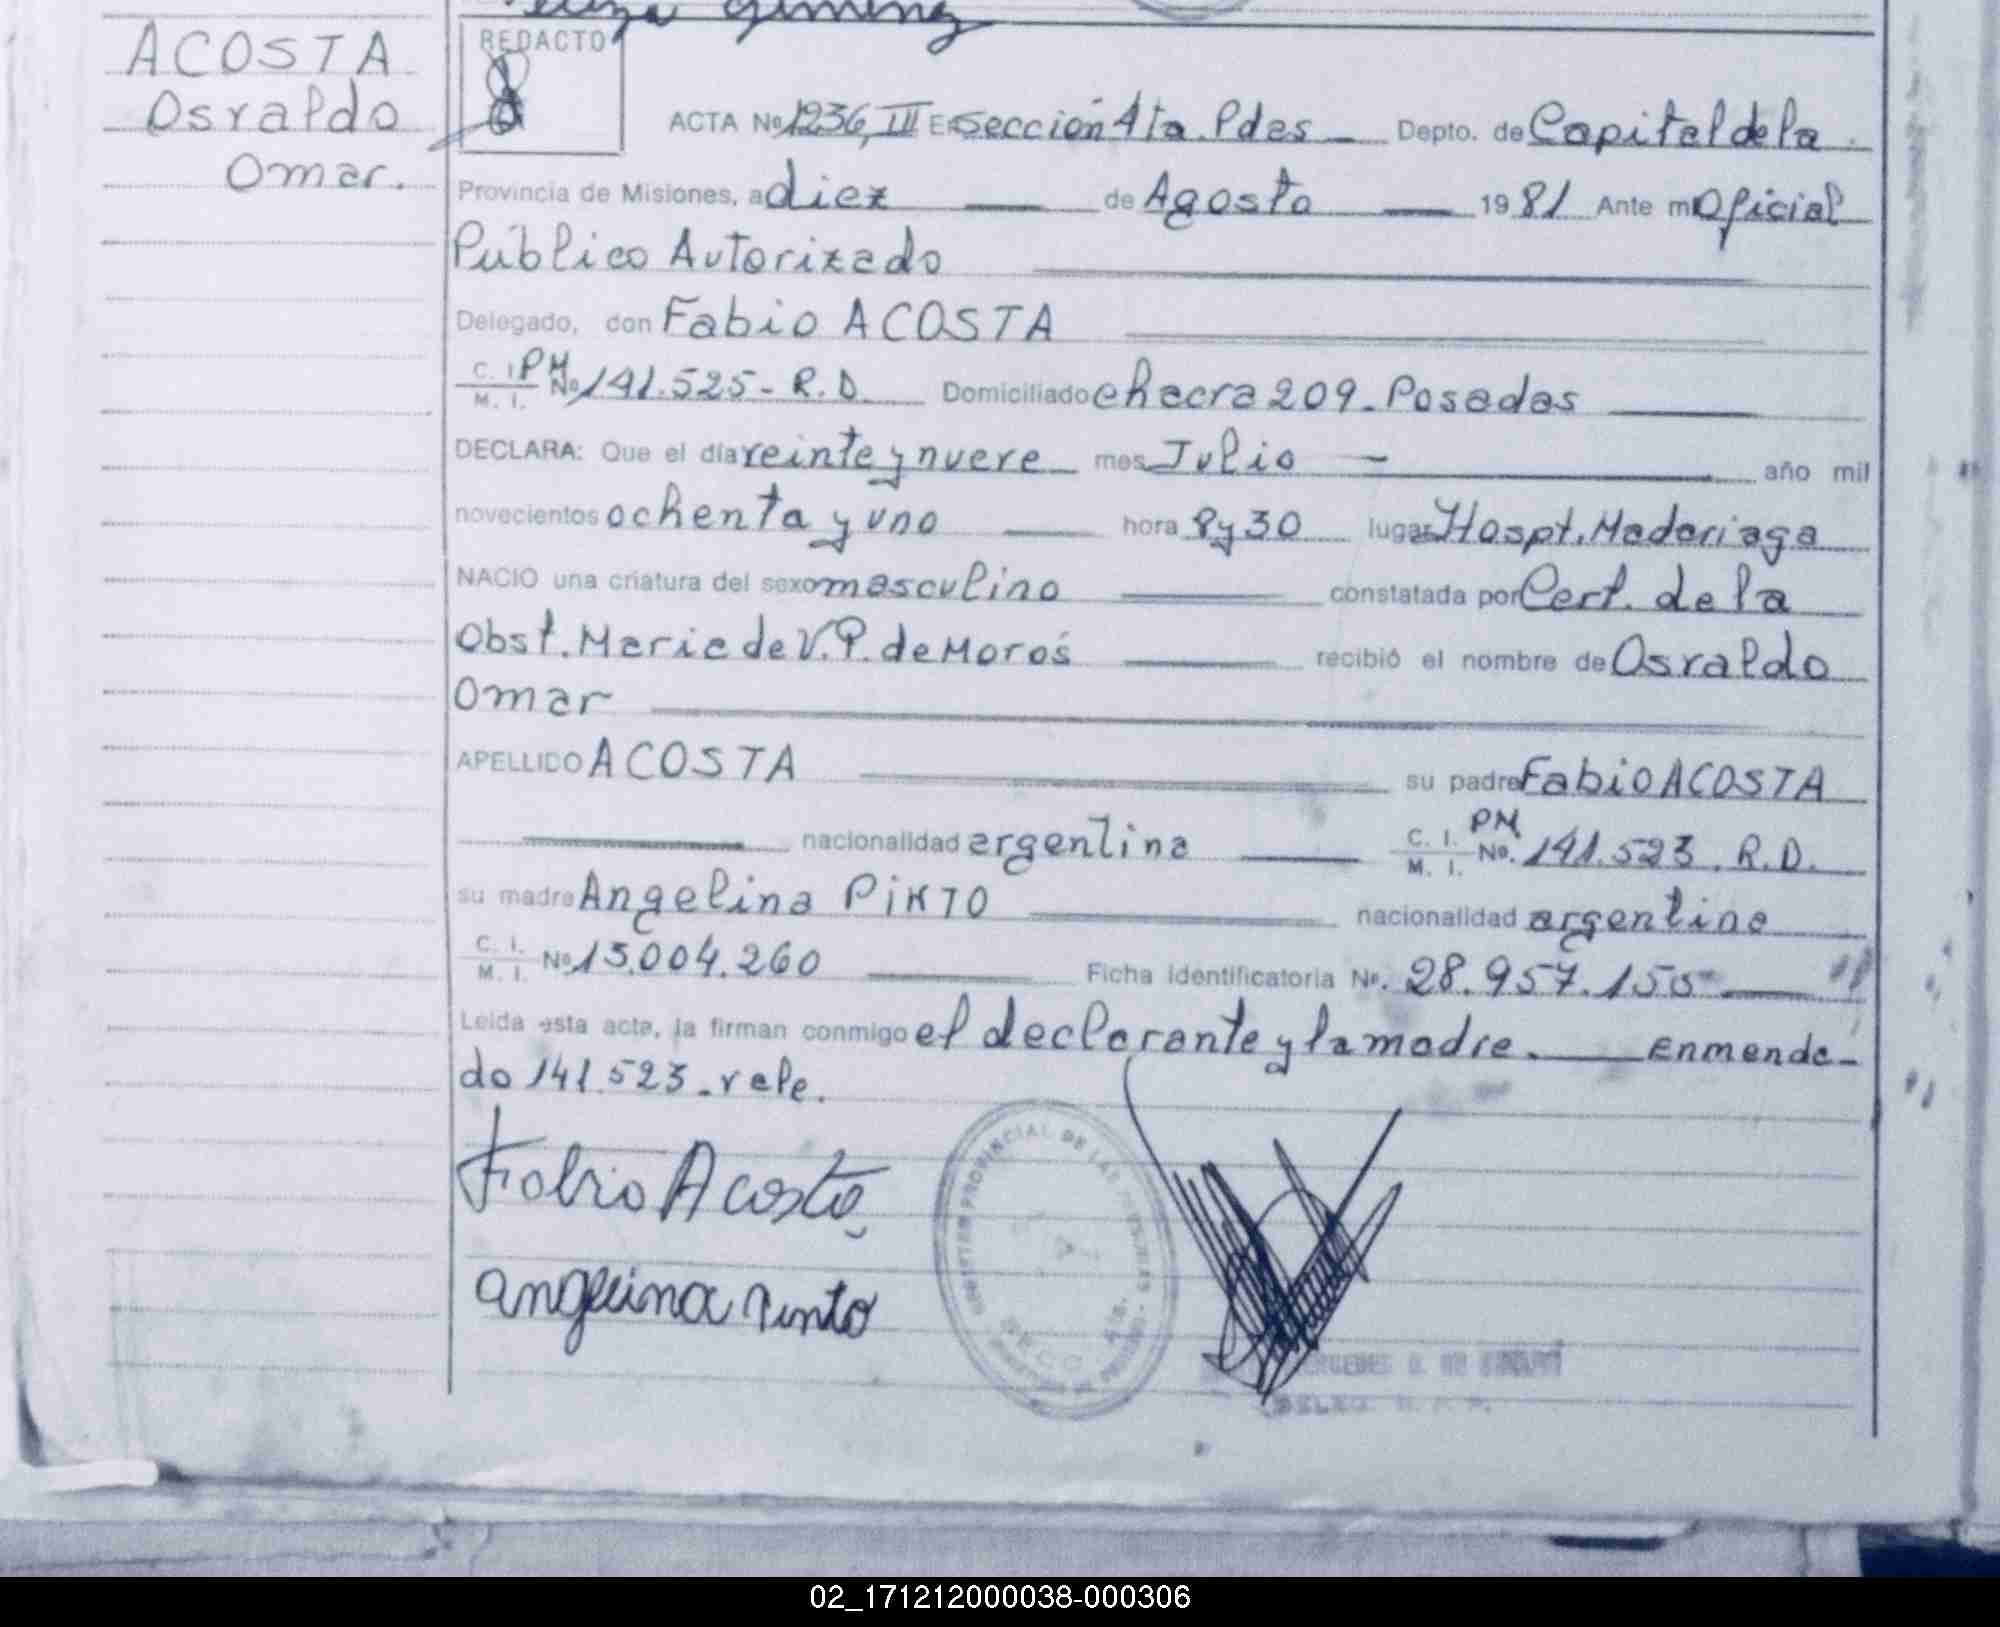 Giménez
ACOSTA
Osvaldo
Omar.
REDACTO
ACTA Nº 1236, III En Sección 4ta. Pdas Depto. de Capital de la
Provincia de Misiones, a diez de Agosto 1981 Ante mi Oficial
Público Autorizado
Delegado, don Fabio ACOSTA
C. I. PM
M. I. Nº 141.525 - R.D. Domiciliado chacra 209 - Posadas
DECLARA: Que el día veinte y nueve mes Julio - año mil
novecientos ochenta y uno hora 8 y 30 lugar Hospt. Madariaga
NACIO una criatura del sexo masculino constatada por Cert. de la
Obst. Maria de V. P. de Moros recibió el nombre de Osvaldo
Omar
APELLIDO ACOSTA su padre Fabio ACOSTA
nacionalidad argentina C. I. PM
M. I. Nº. 141.523. R.D.
su madre Angelina PiNTO nacionalidad argentina
C. I.
M. I. Nº 13.004.260 Ficha Identificatoria Nº. 28.957.155
Leída esta acta, la firman conmigo el declarante y la madre. Enmenda-
do 141.523 - vale.
Fabio Acosta
Angelina Pinto
PROVINCIAL DE LAS
SECC
DELEG.
02_171212000038-000306